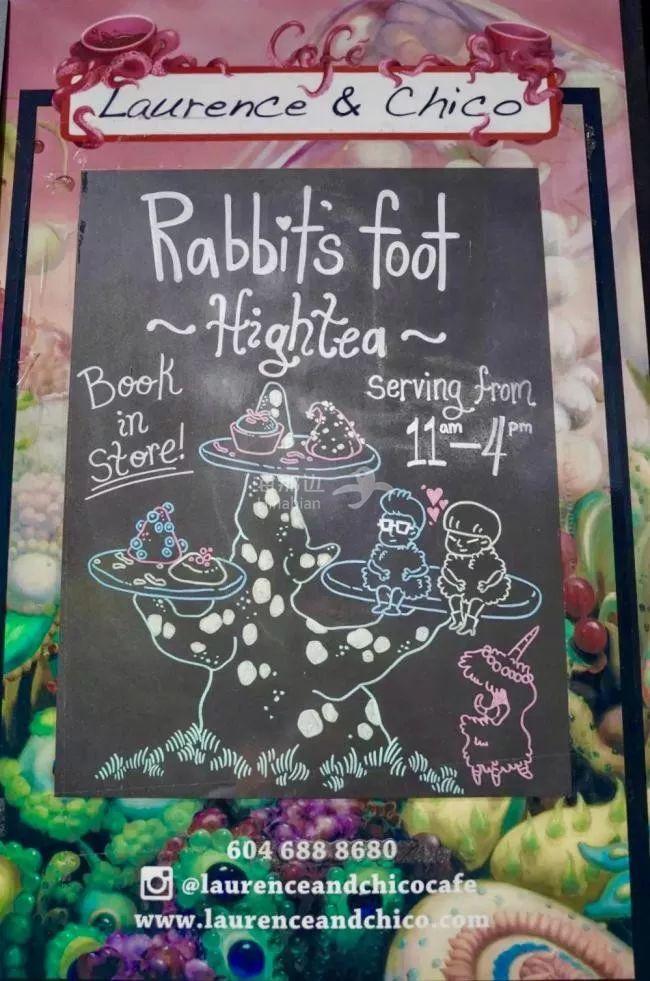 Cafe
Laurence & Chico
Rabbit's foot
~Hightea~
Book
in
Store!
Serving from
11am-4pm
604 688 8680
@laurenceandchicocafe
www.laurenceandchico.com